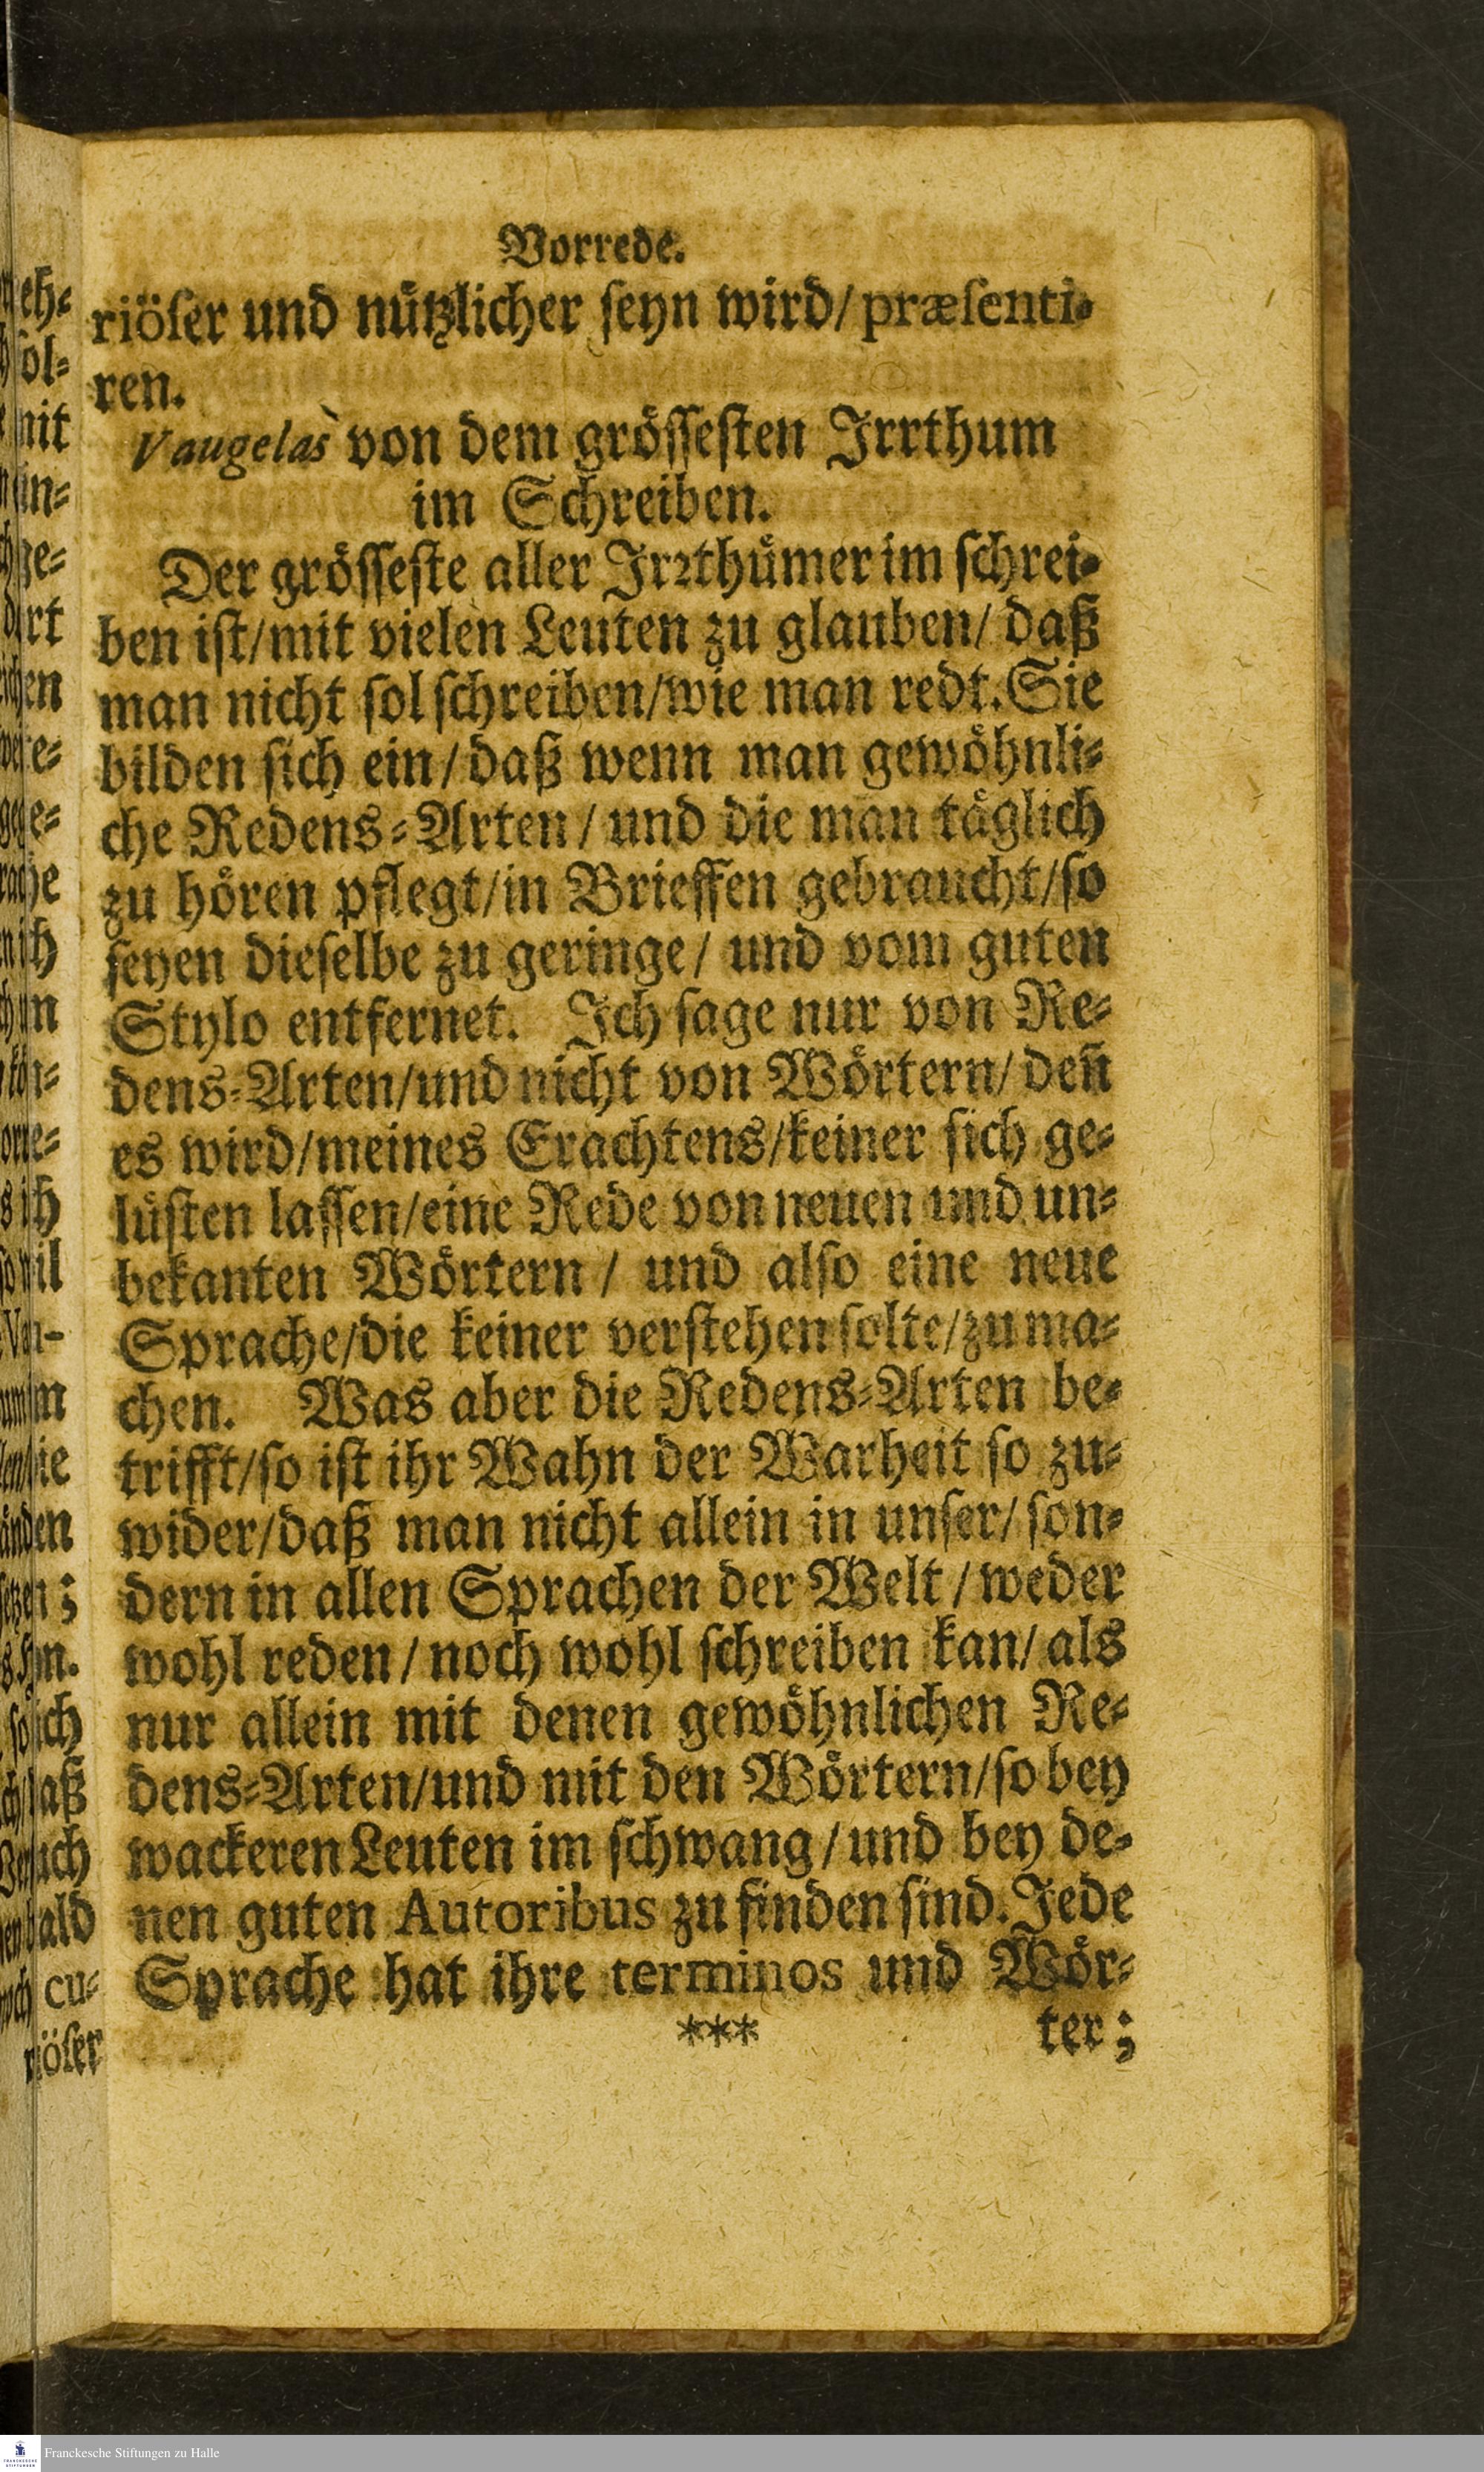 Vorrede.
riöser und nützlicher seyn wird/ præsenti-
ren.
Vaugelas von dem grössesten Irrthum
im Schreiben.
Der grösseste aller Irrthümer im schrei-
ben ist/mit vielen Leuten zu glauben/ daß
man nicht sol schreiben/wie man redt. Sie
bilden sich ein/daß wenn man gewöhnli-
che Redens-Arten/ und die man täglich
zu hören pflegt/in Brieffen gebraucht/so
seyen dieselbe zu geringe/ und vom guten
Stylo entfernet. Ich sage nur von Re-
dens-Arten/und nicht von Wörtern/ deñ
es wird/meines Erachtens/keiner sich ge-
lüsten lassen/eine Rede von neuen und un-
bekanten Wörtern/ und also eine neue
Sprache/die keiner verstehen solte/zu ma-
chen. Was aber die Redens-Arten be-
trifft/so ist ihr Wahn der Warheit so zu-
wider/daß man nicht allein in unser/ son-
dern in allen Sprachen der Welt/weder
wohl reden/noch wohl schreiben kan/ als
nur allein mit denen gewöhnlichen Re-
dens-Arten/und mit den Wörtern/so bey
wackeren Leuten im schwang/und bey de-
nen guten Autoribus zu finden sind. Jede
Sprache hat ihre terminos und Wör-
*** ter;
Franckesche Stiftungen zu Halle